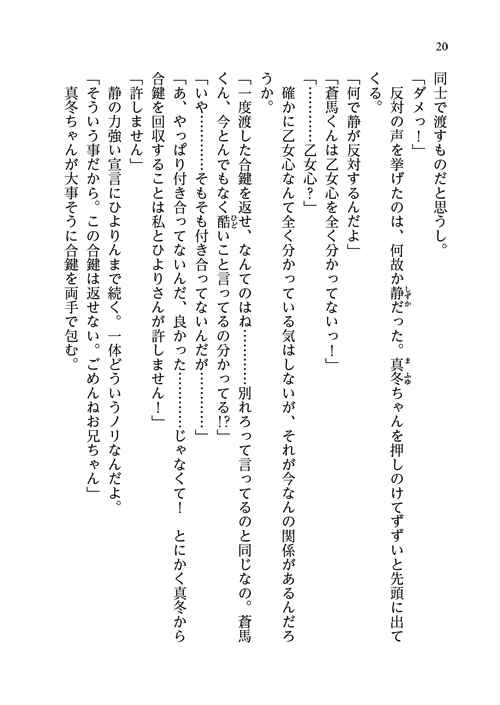 20
同士で渡すものだと思うし。
「ダメっ！」
反対の声を挙げたのは、何故か静だった。真冬ちゃんを押しのけてずずいと先頭に出て
くる。
「何で静が反対するんだよ」
「蒼馬くんは乙女心を全く分かってないっ！」
「…………乙女心？」
確かに乙女心なんて全く分かっている気はしないが、それが今なんの関係があるんだろ
うか。
「一度渡した合鍵を返せ、なんてのはね…………別れろって言ってるのと同じなの。蒼馬
くん、今とんでもなく酷いこと言ってるの分かってる!?」
「いや…………そもそも付き合ってないんだが…………」
「あ、やっぱり付き合ってないんだ、良かった…………じゃなくて！　とにかく真冬から
合鍵を回収することは私とひよりさんが許しません！」
「許しません」
静の力強い宣言にひよりんまで続く。一体どういうノリなんだよ。
「そういう事だから。この合鍵は返せない。ごめんねお兄ちゃん」
真冬ちゃんが大事そうに合鍵を両手で包む。